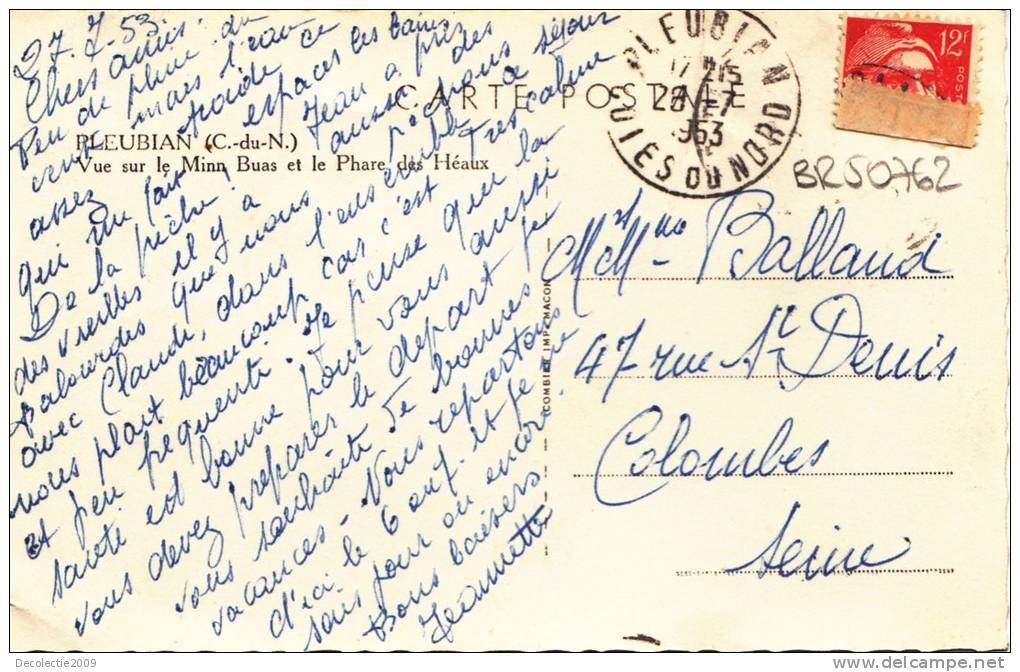 27.7.53.
Chers amis.
Peu de pluie du
vent mais l'eau
assez froide ce
qui espaces les bains
Un fait, Jean a pris
De la pêche aussi des
des vieilles
Balourdes que nous pêchons
avec Claude, dans l'ensemble séjour
nous plait beaucoup car c'est Très calme
et peu fréquenté. Je pense que la
santé est bonne pour vous aussi
vous devez préparer le départ je
vous souhaite de bonnes
vacances. Nous repartons
d'ici le 6 août et je ne
sais pour où encore.
Bons baisers.
Jeannette
CARTE POSTALE
PLEUBIAN (C.-du-N.)
Vue sur le Minn Buas et le Phare des Héaux
COMBIER IMP. MACON
PLEUBIAN
17 H 15
28 -7
1953
COTES DU NORD
12f
POSTES
BR50762
M et Mme Balland
47 rue St Denis
Colombes
Seine
Decolectie2009
delcampe.net